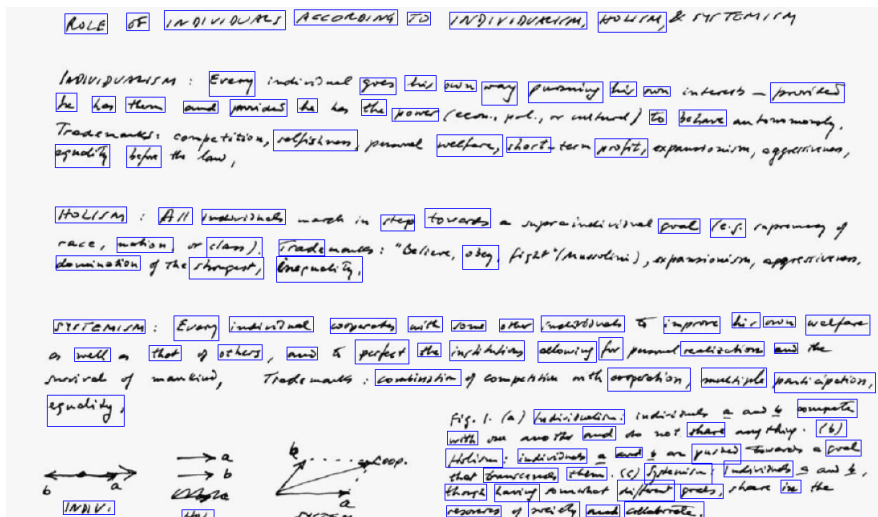 ROLE OF INDIVIDUALS ACCORDING TO INDIVIDUALISM, HOLISM, & SYSTEMISM
INDIVIDUALISM : Every individual goes his own way pursuing his own interests — provided
he has them and provided he has the power (econ., pol., or cultural) to behave autonomously.
Trademarks: competition, selfishness, personal welfare, short-term profit, expansionism, aggressiveness,
equality before the law,
HOLISM : All individuals march in step towards a supraindividual goal (e.g. supremacy of
race, nation, or class). Trademarks: "Believe, obey, fight" (Mussolini), expansionism, aggressiveness,
domination of the strongest, inequality.
SYSTEMISM : Every individual cooperates with some other individuals to improve his own welfare
as well as that of others, and to perfect the institutions allowing for personal realization and the
survival of mankind, Trademarks : combination of competition with cooperation, multiple participation,
equality.
Fig. 1. (a) Individualism: individuals a and b compete
with one another and do not share anything. (b)
Holism: individuals a and b are pushed towards a goal
that transcends them. (c) Systemism: Individuals a and b,
though having somewhat different goals, share in the
resources of society and collaborate.
b a
INDIV.
a
b
HOL
b coop.
a
SYSTEM